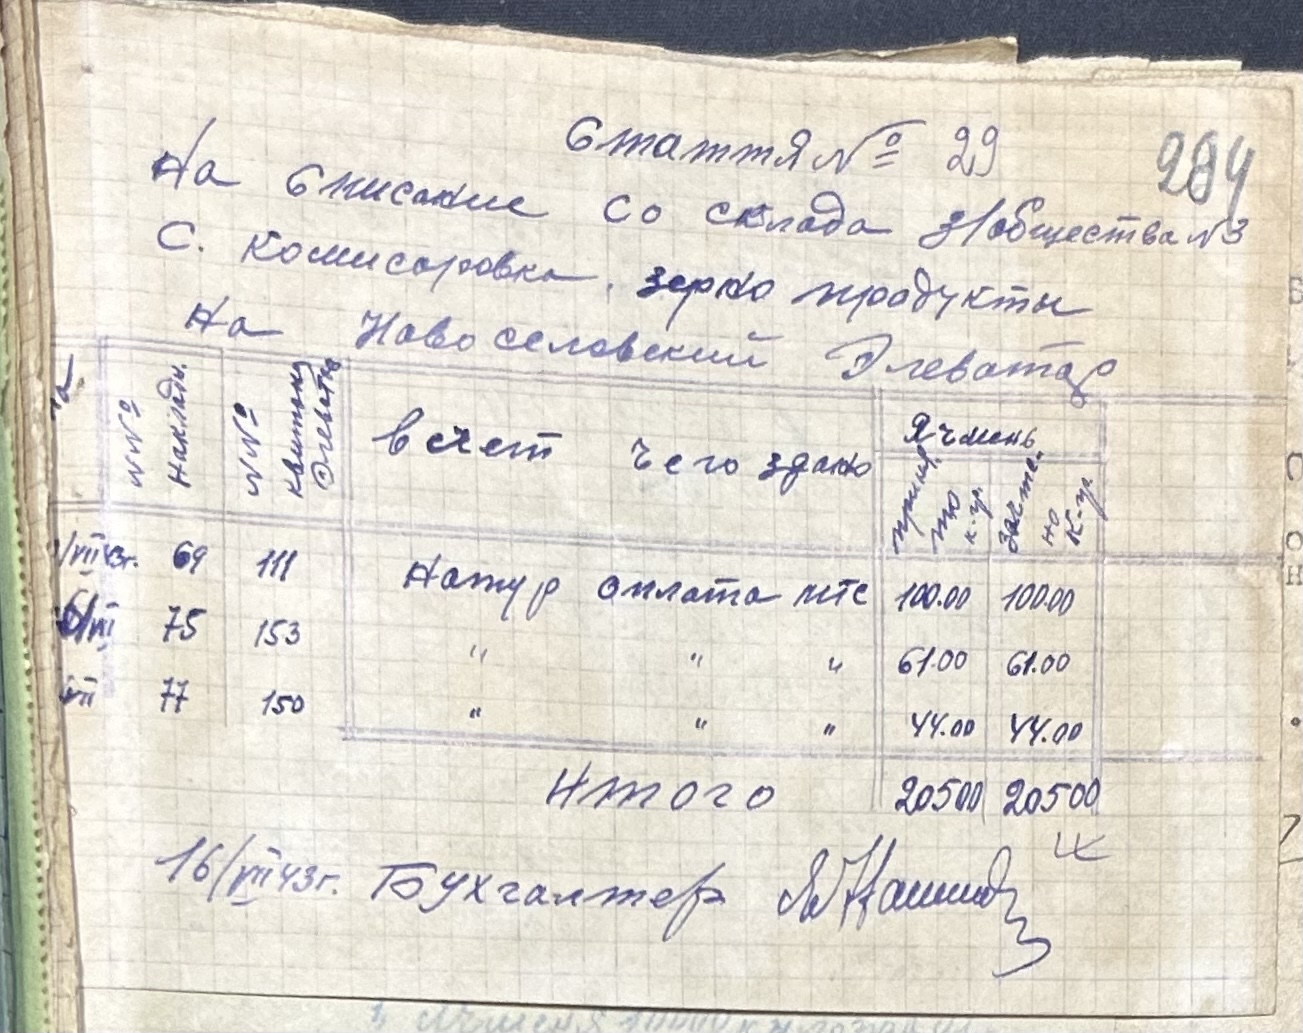 Стаття № 29
284
На списание со склада з/общества №3
С. Комисаровка, зерно продукты
На Новоселовский Элеватор
№№ Накладн.
№№ квитанц Элеватор
В счет чего здано
Ячмень
принято к-гр.
Зачтено к-гр.
/VII 43г. 69 111 Натур оплата мтс 100.00 100.00
6/VII 75 153 " " " 61.00 61.00
VII 77 150 " " " 44.00 44.00
Итого 20500 20500
16/VII 43г. Бухгалтер